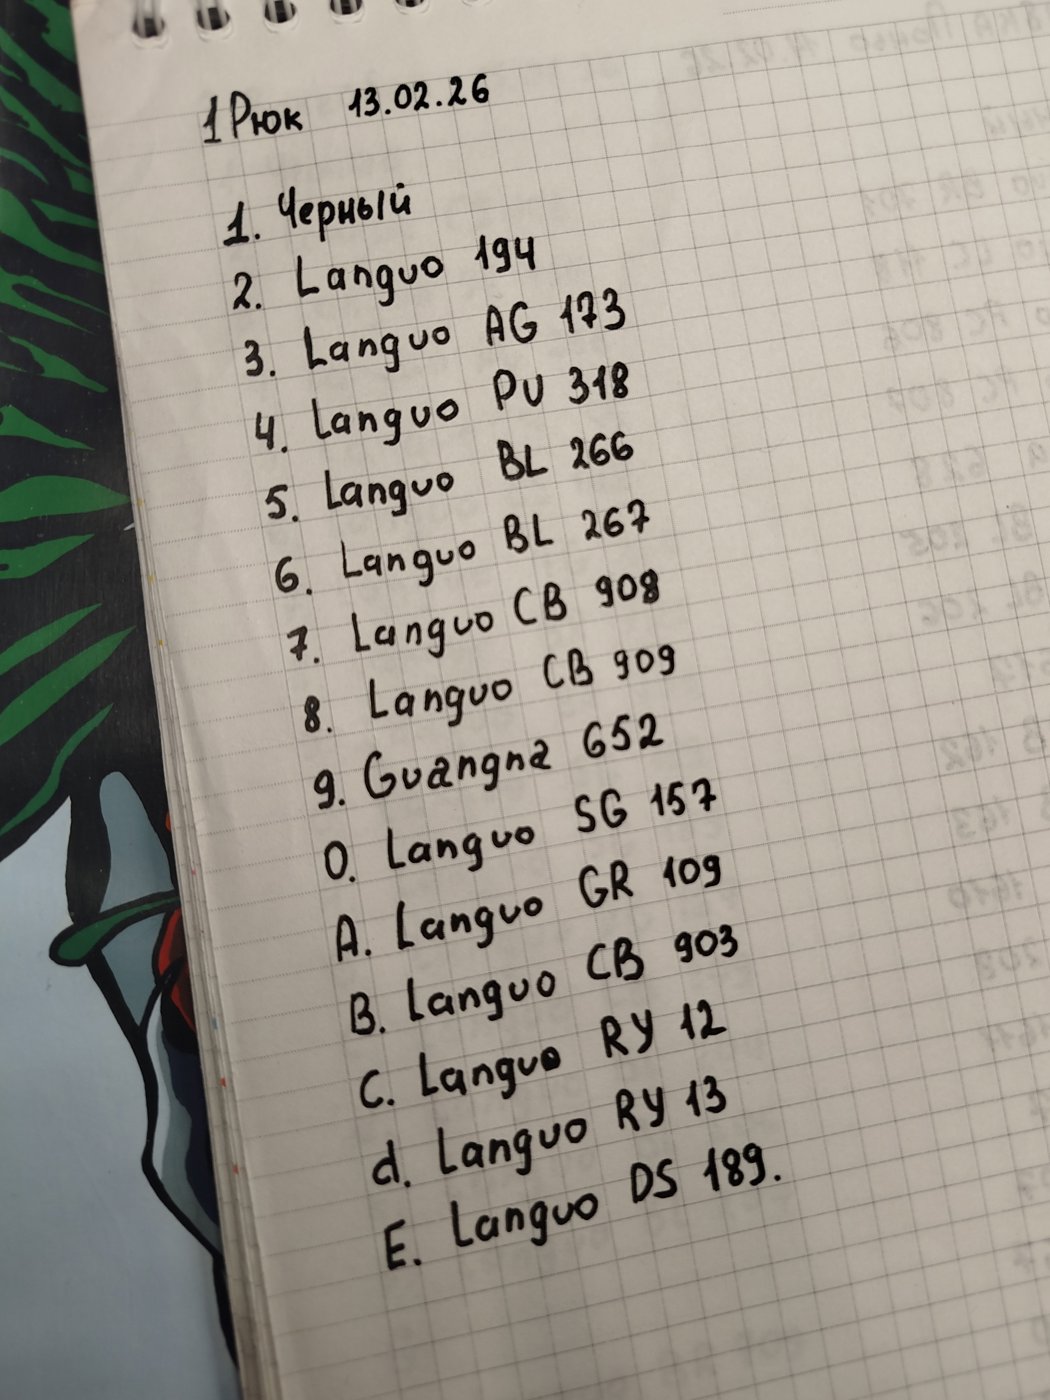 1 Рюк 13.02.26
1. Черный
2. Languo 194
3. Languo AG 173
4. Languo PU 318
5. Languo BL 266
6. Languo BL 267
7. Languo CB 908
8. Languo CB 909
9. Guangna 652
0. Languo SG 157
A. Languo GR 109
B. Languo CB 903
C. Languo RY 12
d. Languo RY 13
E. Languo DS 189.